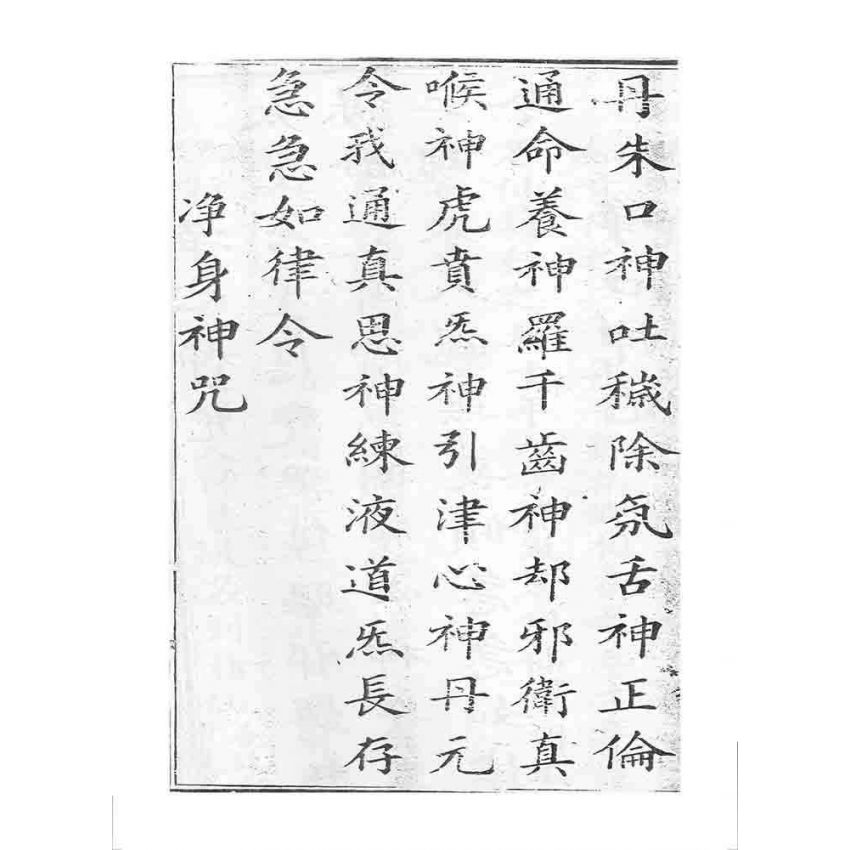 丹朱口神吐穢除氛舌神正倫
通命養神羅千齒神却邪衛真
喉神虎賁炁神引津心神丹元
令我通真思神練液道炁長存
急急如律令
净身神咒